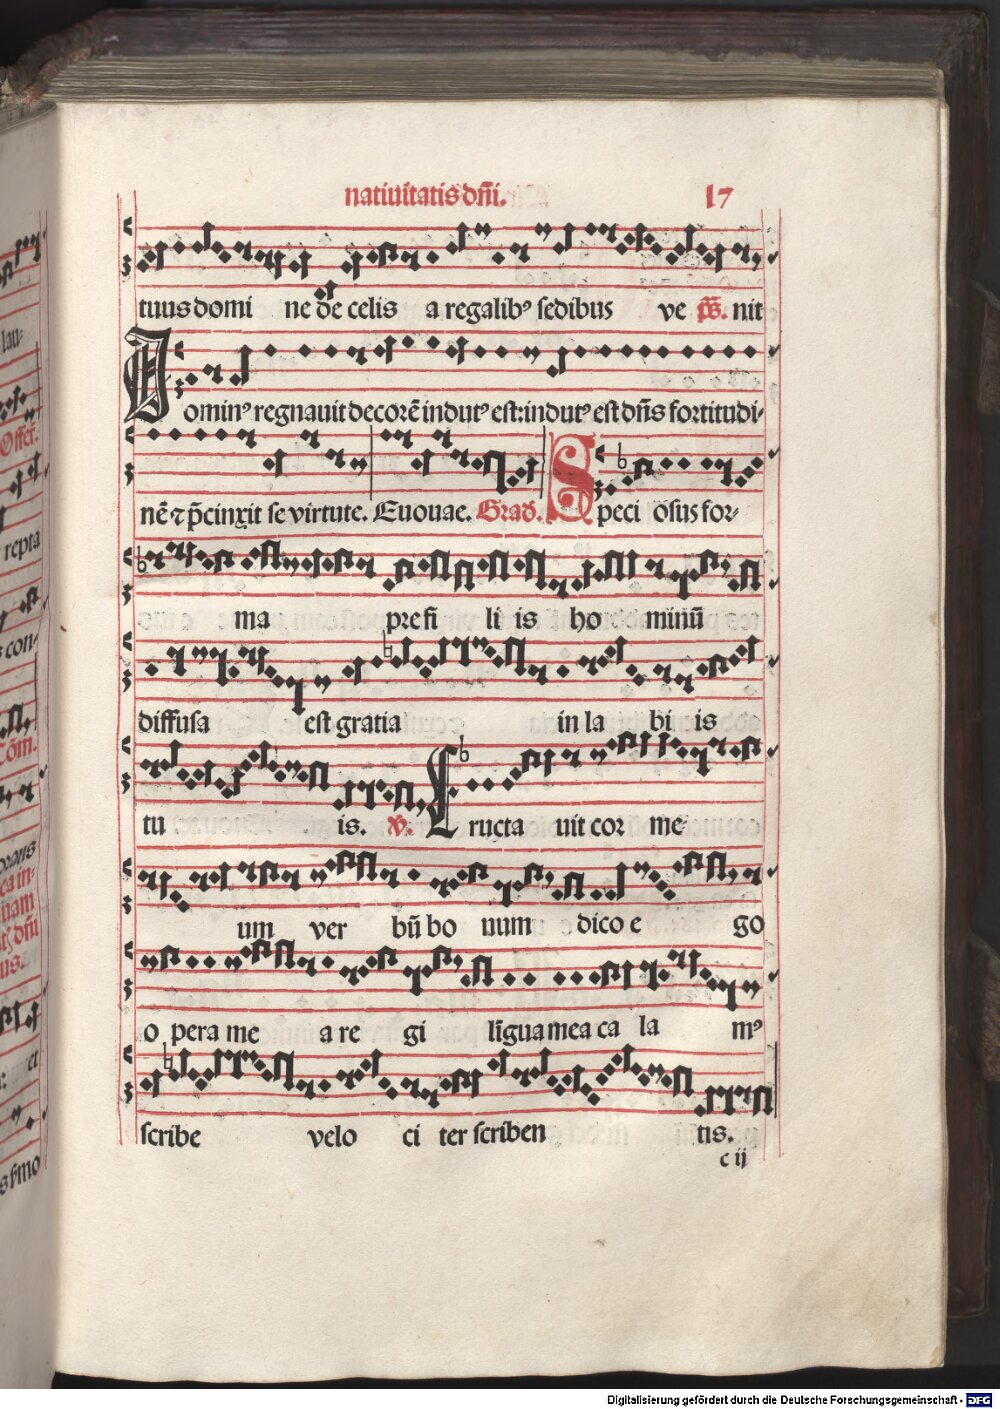 natiuitatis dn̄i. 17
tuus domi ne de celis a regalibꝰ sedibus ve ps̄. nit
Dominꝰ regnauit decorē indutꝰ est: indutꝰ est dn̄s fortitudi-
nē ⁊ p̄cinxit se virtute. Euouae. Grad. Speci osus for-
ma pre fi li is ho minū
diffusa est gratia in la bi is
tu is. ꝟ. Eructa uit cor me
um ver bū bo num dico e go
o pera me a re gi līgua mea ca la mꝰ
scribe velo ci ter scriben tis.
c ij
lau-
Offer̄.
repta
con-
Com̄.
ea in-
dn̄i
et
Digitalisierung gefördert durch die Deutsche Forschungsgemeinschaft - DFG